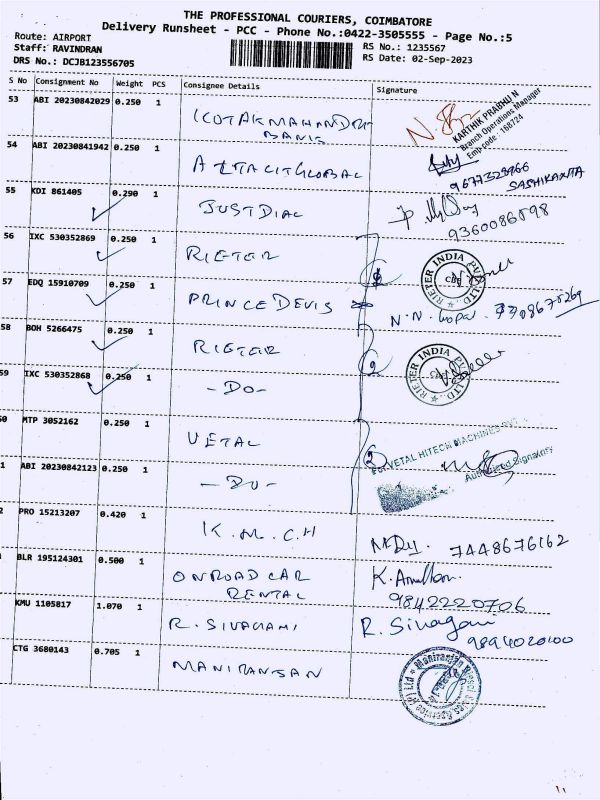 THE PROFESSIONAL COURIERS, COIMBATORE
Delivery Runsheet - PCC - Phone No.:0422-3505555 - Page No.:5
Route: AIRPORT
Staff: RAVINDRAN
DRS No.: DCJB123556705
RS No.: 1235567
RS Date: 02-Sep-2023
S No Consignment No Weight PCS Consignee Details Signature
53 ABI 20230842029 0.250 1 KOTAK MAHANDRA
BANK
KARTHIK PRABHU N
Branch Operations Manager
Emp code: 168724
54 ABI 20230841942 0.250 1
SASHIKANTA
55 KDI 861405 0.290 1 JUSTDIAL
9360086898
56 IXC 530352869 0.250 1 RIETER
RIETER INDIA PVT. LTD.
57 EDQ 15910709 0.250 1 PRINCE DEVIS
58 BOH 5266475 0.250 1 RIETER 2
RIETER INDIA PVT. LTD.
59 IXC 530352868 0.250 1 -DO-
60 MTP 3052162 0.250 1 VETAL
VETAL HITECH MACHINES
Authorised Signatory
1 ABI 20230842123 0.250 1 -DO- 2
2 PRO 15213207 0.420 1 K.M.C.H
7448676162
BLR 195124301 0.500 1 ONROAD CAR
RENTAL
9842220706
KMU 1105817 1.070 1 R. SIVAGAMI R. Sivagami
9894020100
CTG 3680143 0.705 1 MANIRANSAN